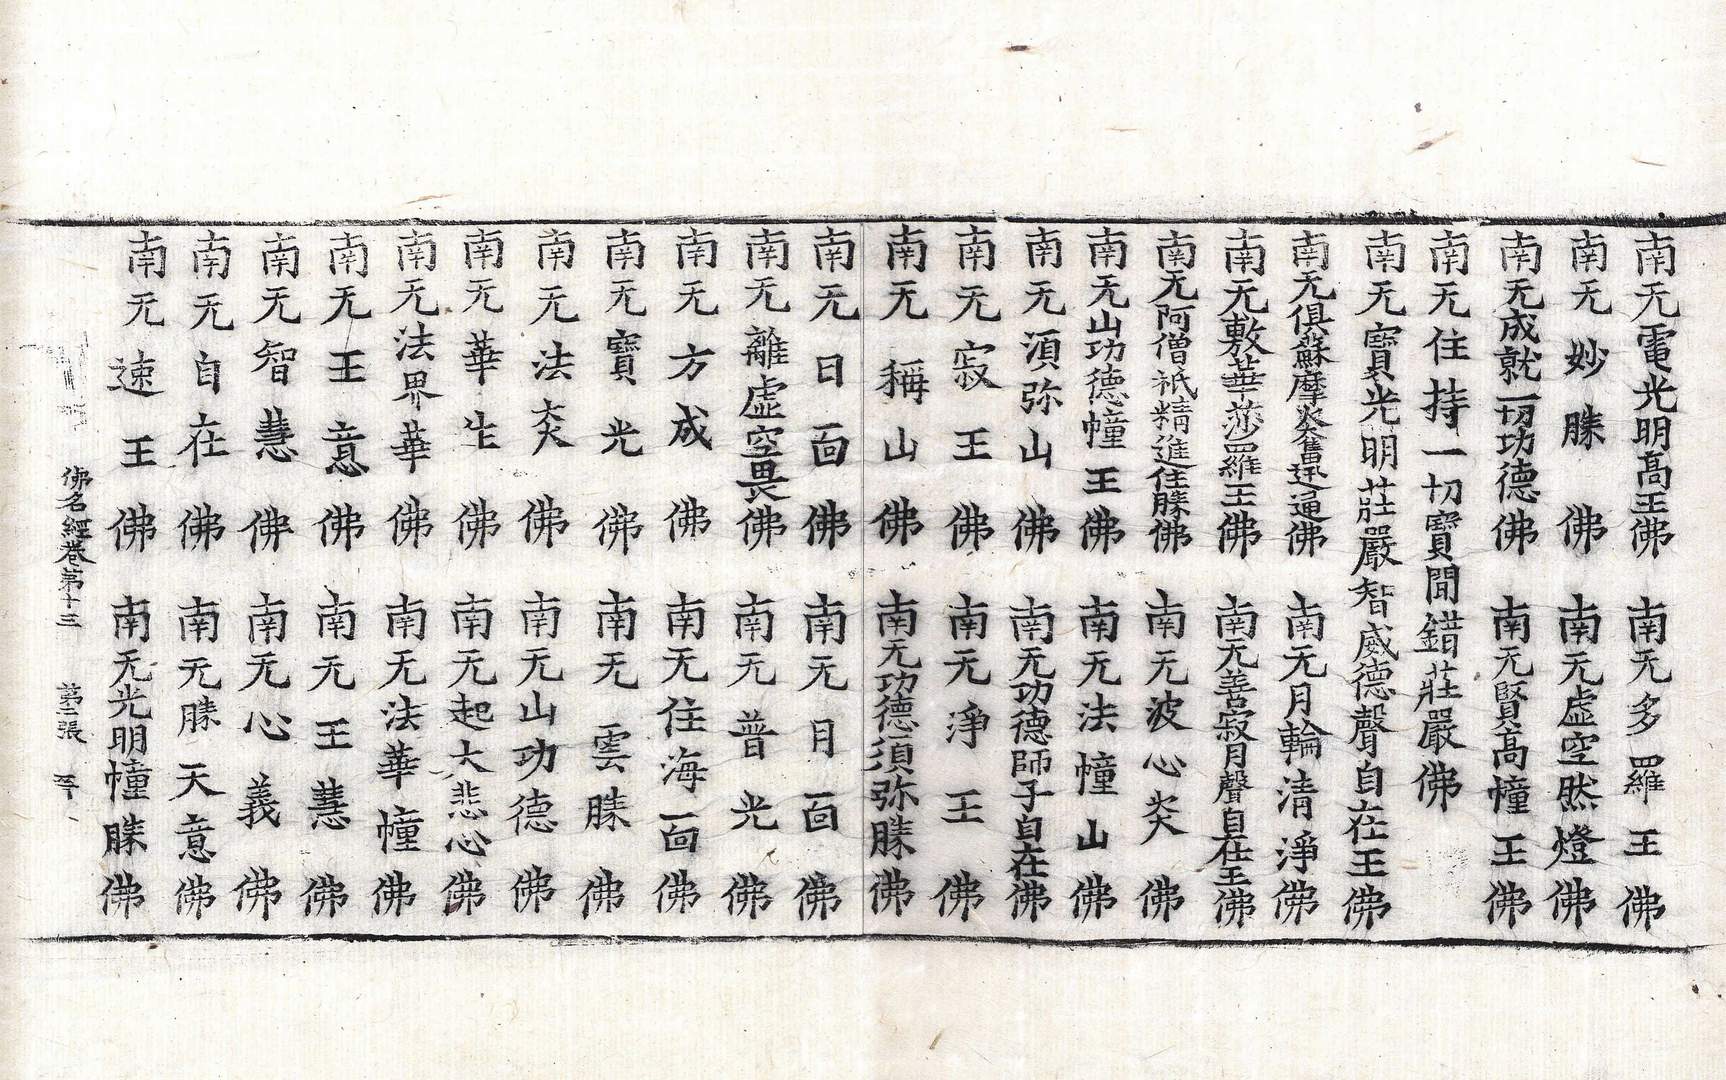 南无電光明高王佛　南无多羅王佛
南无妙勝佛　南无虛空然燈佛
南无成就一切功德佛　南无賢高幢王佛
南无住持一切寶間錯莊嚴佛
南无寶光明莊嚴智威德聲自在王佛
南无俱蘇摩炎奮迅通佛　南无月輪清淨佛
南无敷華莎羅王佛　南无善寂月聲自在王佛
南无阿僧祇精進住勝佛　南无波心炎佛
南无山功德幢王佛　南无法幢山佛
南无須弥山佛　南无功德師子自在佛
南无寂王佛　南无淨王佛
南无稱山佛　南无功德須弥勝佛
南无日面佛　南无月面佛
南无離虛空畏佛　南无普光佛
南无方成佛　南无住海面佛
南无寶光佛　南无雲勝佛
南无法炎佛　南无山功德佛
南无華生佛　南无起大悲心佛
南无法界華佛　南无法華幢佛
南无王意佛　南无王慧佛
南无智慧佛　南无心義佛
南无自在佛　南无勝天意佛
南无速王佛　南无光明幢勝佛
佛名經卷第十三　第二張